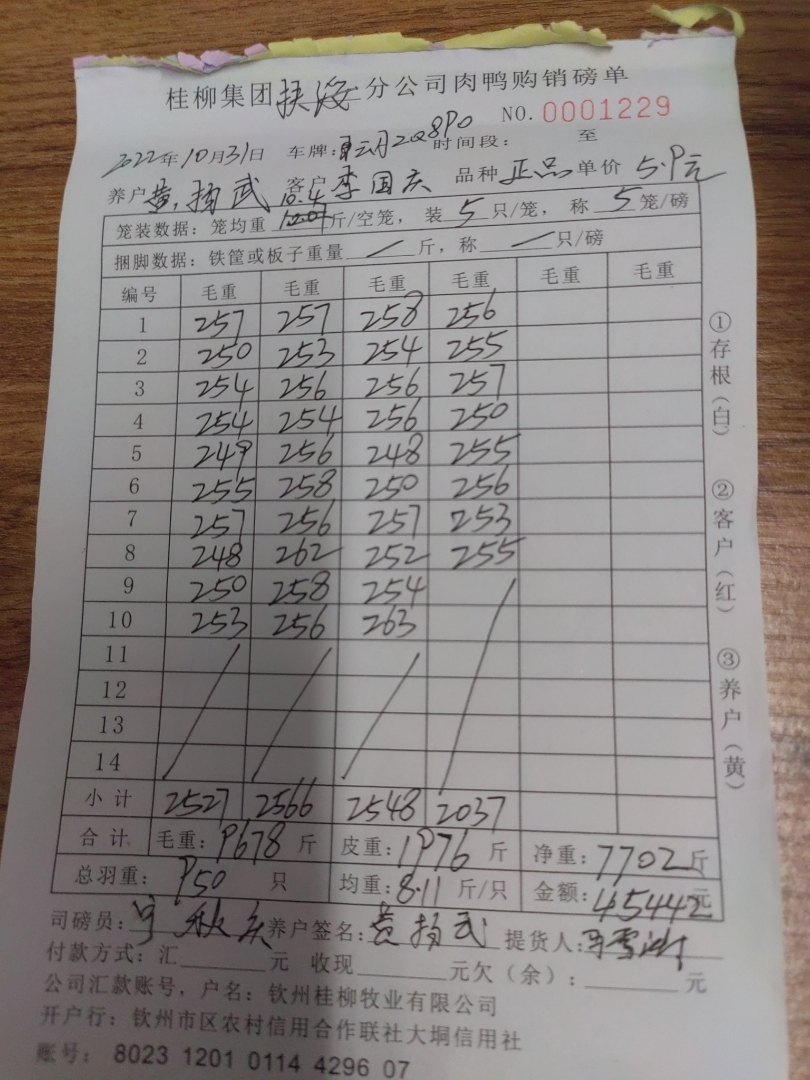 桂柳集团扶海分公司肉鸭购销磅单
NO. 0001229
2022年10月31日 车牌: 2Q8P0 时间段: 至
养户 黄扬武 客户 李国庆 品种 正品 单价 5.9元
笼装数据: 笼均重 10.4 斤/空笼, 装 5 只/笼, 称 5 笼/磅
捆脚数据: 铁筐或板子重量 / 斤, 称 / 只/磅
编号 毛重 毛重 毛重 毛重 毛重 毛重
1 257 257 258 256
2 250 253 254 255
3 254 256 256 257
4 254 254 256 250
5 249 256 248 255
6 255 258 250 256
7 257 256 257 253
8 248 262 252 255
9 250 258 254
10 253 256 263
11
12
13
14
小计 2527 2566 2548 2037
合计 毛重: 9678 斤 皮重: 1976 斤 净重: 7702 斤
总羽重: 950 只 均重: 8.11 斤/只 金额: 45442 元
司磅员: 秋庆 养户签名: 黄扬武 提货人:
付款方式: 汇 元 收现 元欠(余): 元
公司汇款账号, 户名: 钦州桂柳牧业有限公司
开户行: 钦州市区农村信用合作联社大垌信用社
账号: 8023 1201 0114 4296 07
①存根(白) ②客户(红) ③养户(黄)